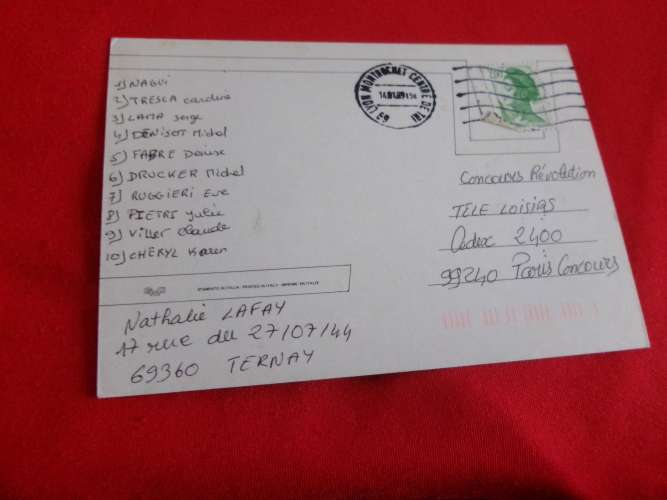 1) NAGUI
2) TRESCA Caroline
3) LAMA Serge
4) DENISOT Michel
5) FABRE Denise
6) DRUCKER Michel
7) RUGGIERI Eve
8) PIETRI Julie
9) Villers Claude
10) CHERYL Karen
STAMPATO IN ITALIA - PRINTED IN ITALY - IMPRIME EN ITALIE
Nathalie LAFAY
17 rue du 27/07/44
69360 TERNAY
69 LYON MONTROCHET CENTRE DE TRI
Concours Révolution
TELE LOISIRS
Cedex 2400
99240 Paris Concours